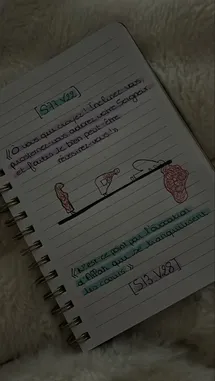 [S22.V77]
« Ô vous qui croyez ! Inclinez-vous
prosternez-vous adorez votre Seigneur
et faites le bien peut être
réussirez vous ! »
« N'est ce point par l'évocation
d'Allah que se tranquillisent
les cœurs »
[S13.V28]